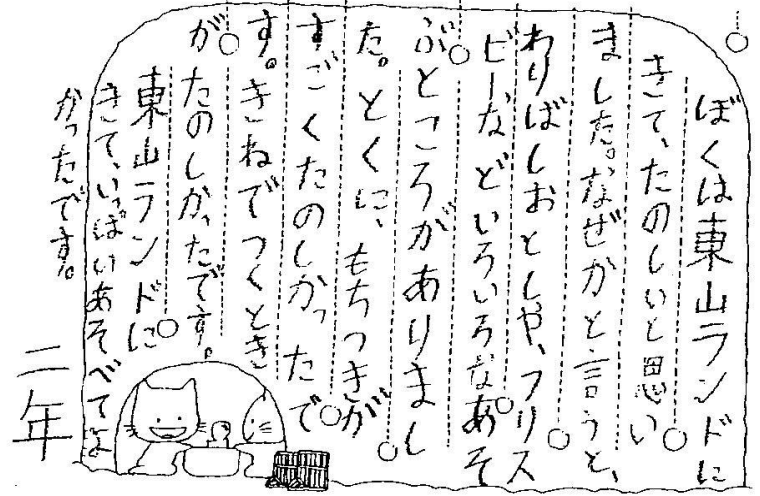 ぼくは東山ランドに
きて、たのしいと思い
ました。なぜかと言うと、
わりばしおとしや、フリス
ビーなどいろいろなあそ
ぶところがありまし
た。とくに、もちつきが
すごくたのしかったで
す。きねでつくとき
がたのしかったです。
東山ランドに
きて、いっぱいあそべてよ
かったです。
二年